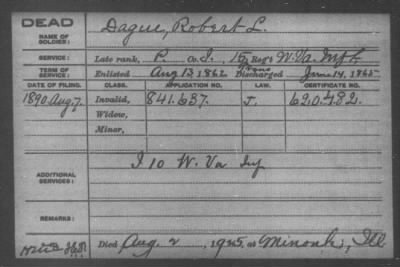 DEAD
NAME OF SOLDIER: Dague, Robert L.
SERVICE: Late rank, P. Co. I, 15 Reg't W. Va. Inf
TERM OF SERVICE: Enlisted Aug 13 1862 Discharged June 14, 1865
DATE OF FILING. CLASS. APPLICATION NO. LAW. CERTIFICATE NO.
1890 Aug. 7. Invalid, 841.637. J. 620.482.
Widow,
Minor,
ADDITIONAL SERVICES: I 10 W. Va Inf
REMARKS:
Died Aug. 2, 1925, at Minonk, Ill